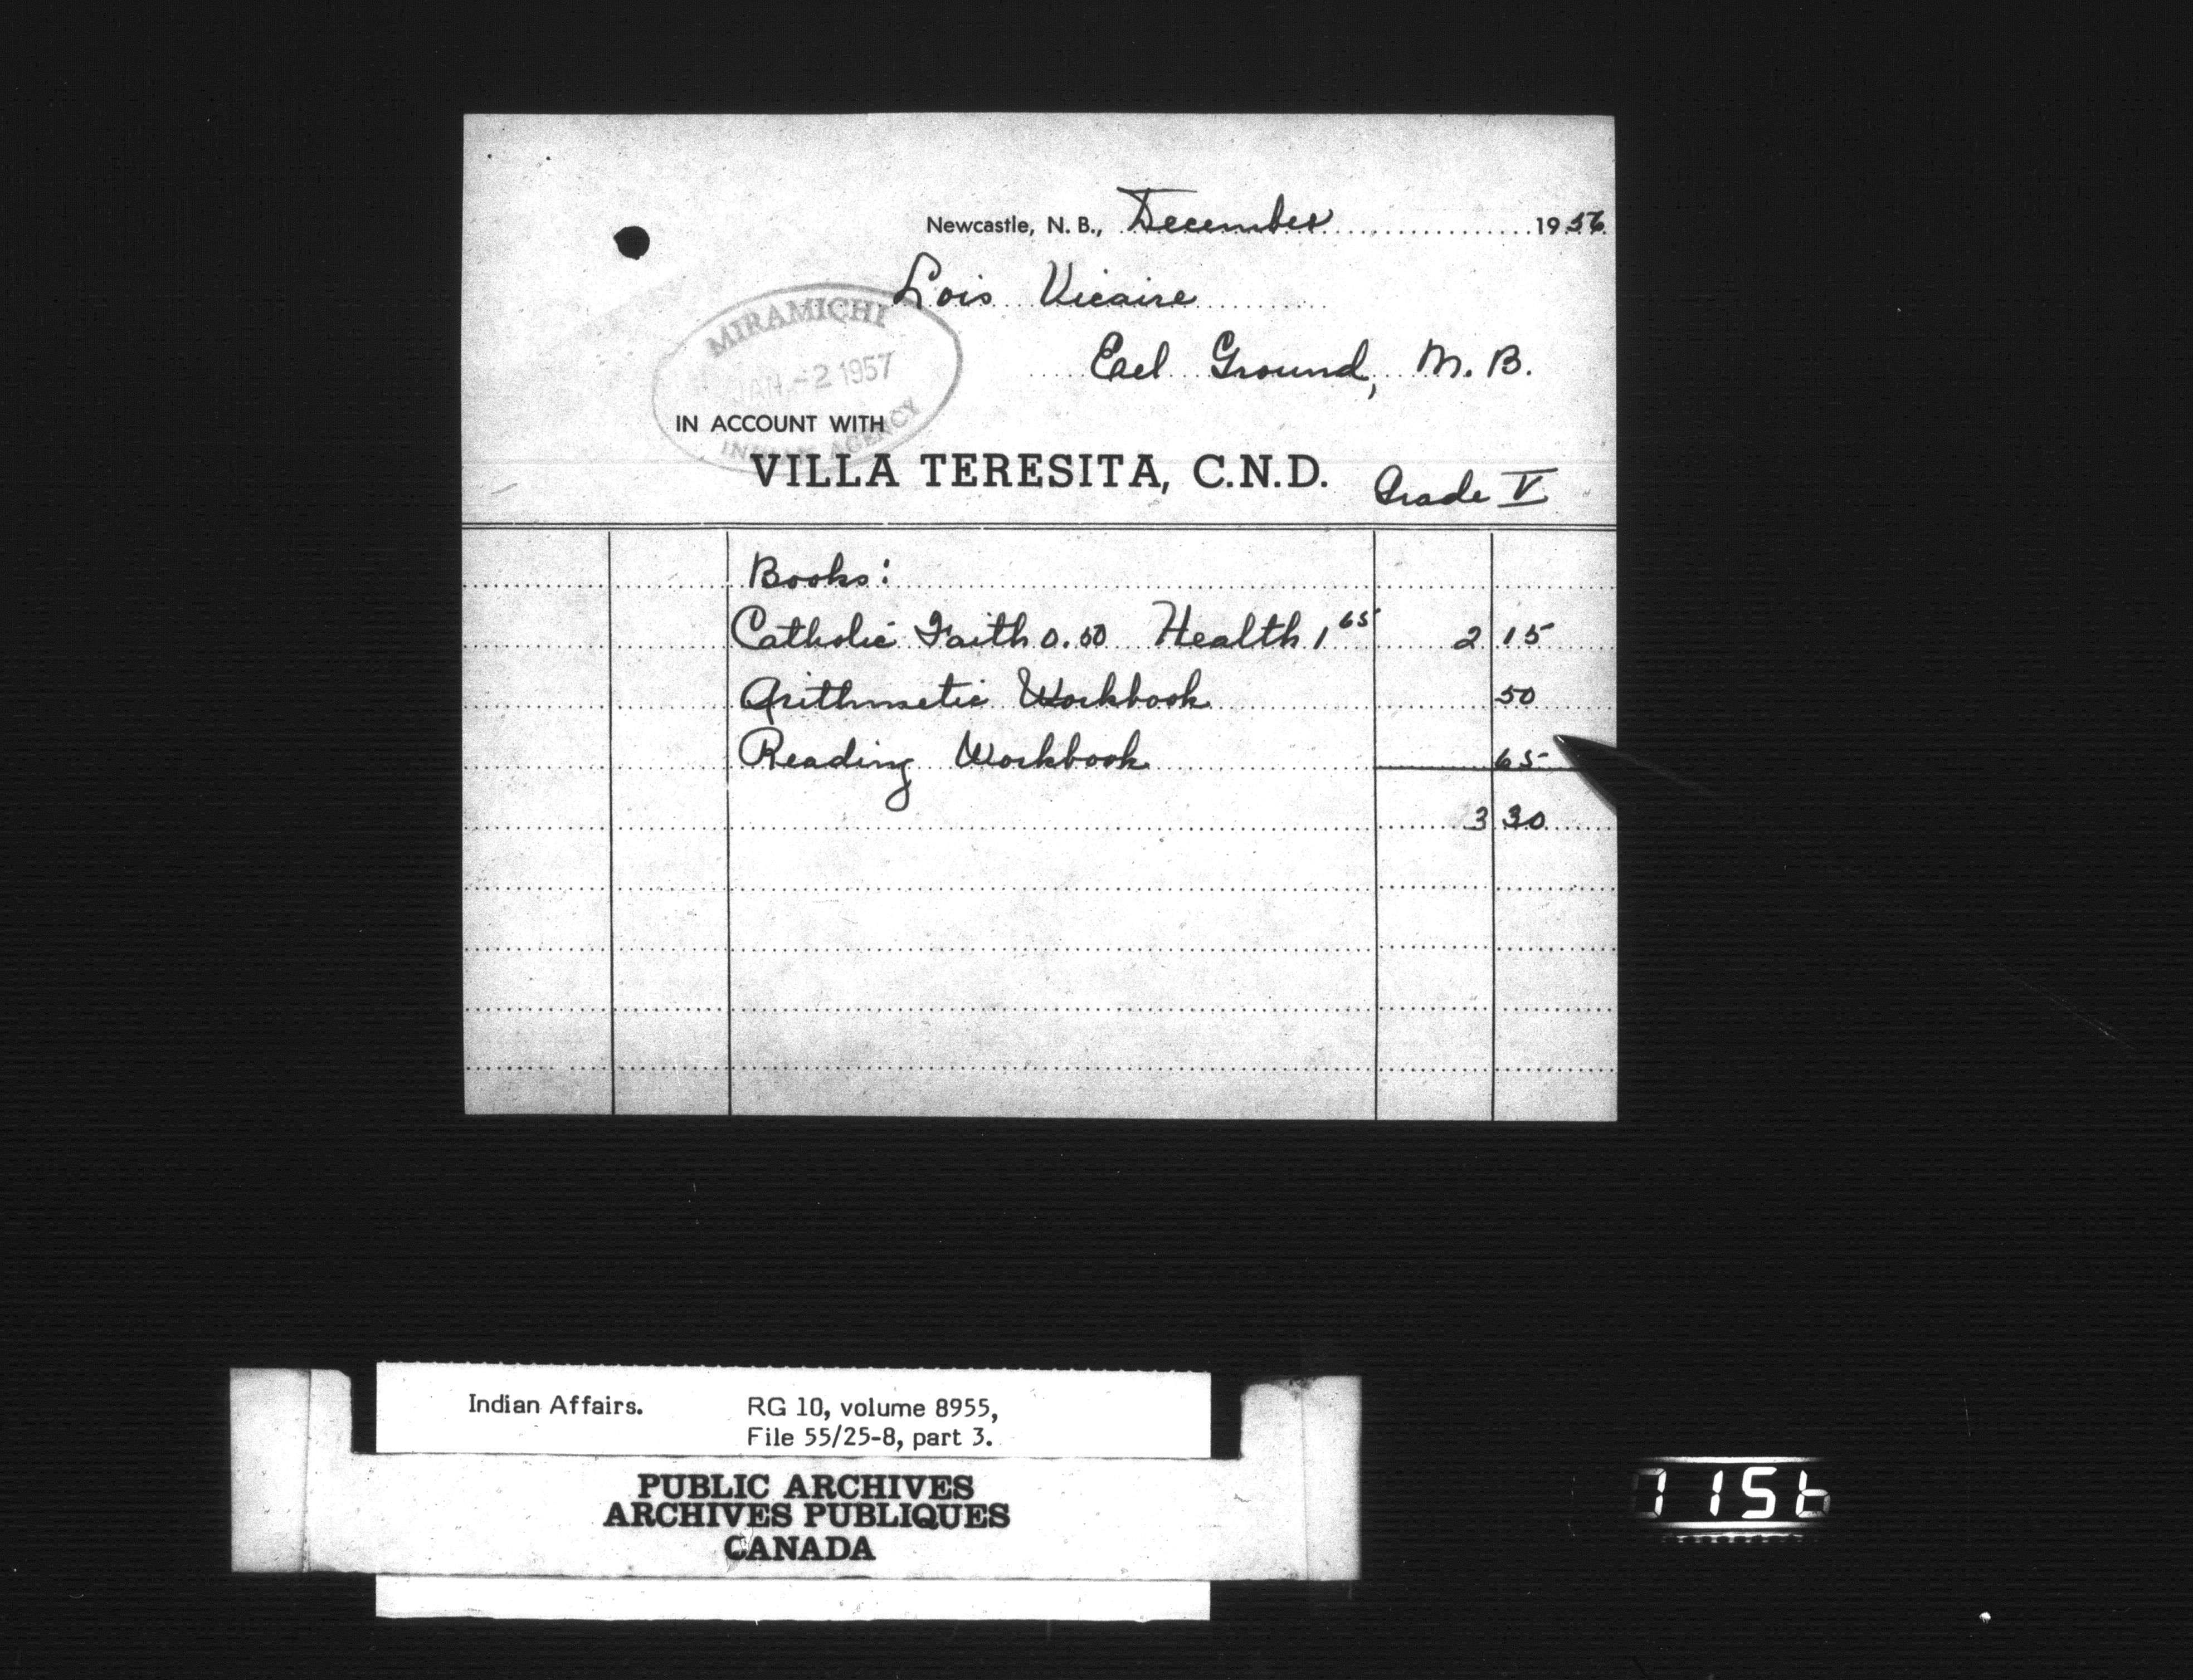 Newcastle, N. B., December 1956
Lois Vicaire
Eel Ground, N. B.
MIRAMICHI
JAN -2 1957
INDIAN AGENCY
IN ACCOUNT WITH
VILLA TERESITA, C.N.D. Grade V
Books:
Catholic Faith 0.50 Health 1 65 2 15
Arithmetic Workbook 50
Reading Workbook 65
3 30
Indian Affairs. RG 10, volume 8955,
File 55/25-8, part 3.
PUBLIC ARCHIVES
ARCHIVES PUBLIQUES
CANADA